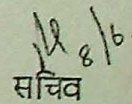 8/6
सचिव